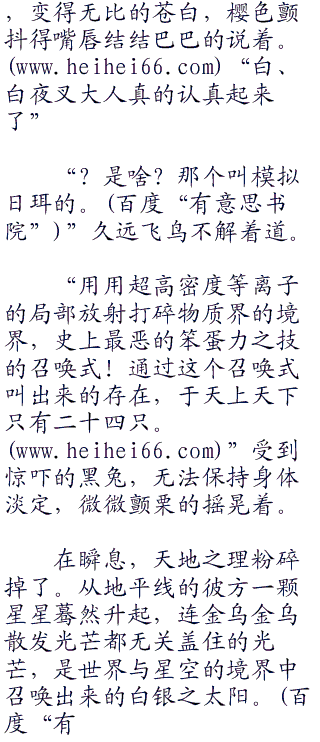 ，变得无比的苍白，樱色颤
抖得嘴唇结结巴巴的说着。
(www.heihei66.com)“白、
白夜叉大人真的认真起来
了”
“？是啥？那个叫模拟
日珥的。(百度“有意思书
院”)”久远飞鸟不解着道。
“用用超高密度等离子
的局部放射打碎物质界的境
界，史上最恶的笨蛋力之技
的召唤式！通过这个召唤式
叫出来的存在，于天上天下
只有二十四只。
(www.heihei66.com)”受到
惊吓的黑兔，无法保持身体
淡定，微微颤栗的摇晃着。
在瞬息，天地之理粉碎
掉了。从地平线的彼方一颗
星星蓦然升起，连金乌金乌
散发光芒都无关盖住的光
芒，是世界与星空的境界中
召唤出来的白银之太阳。(百
度“有